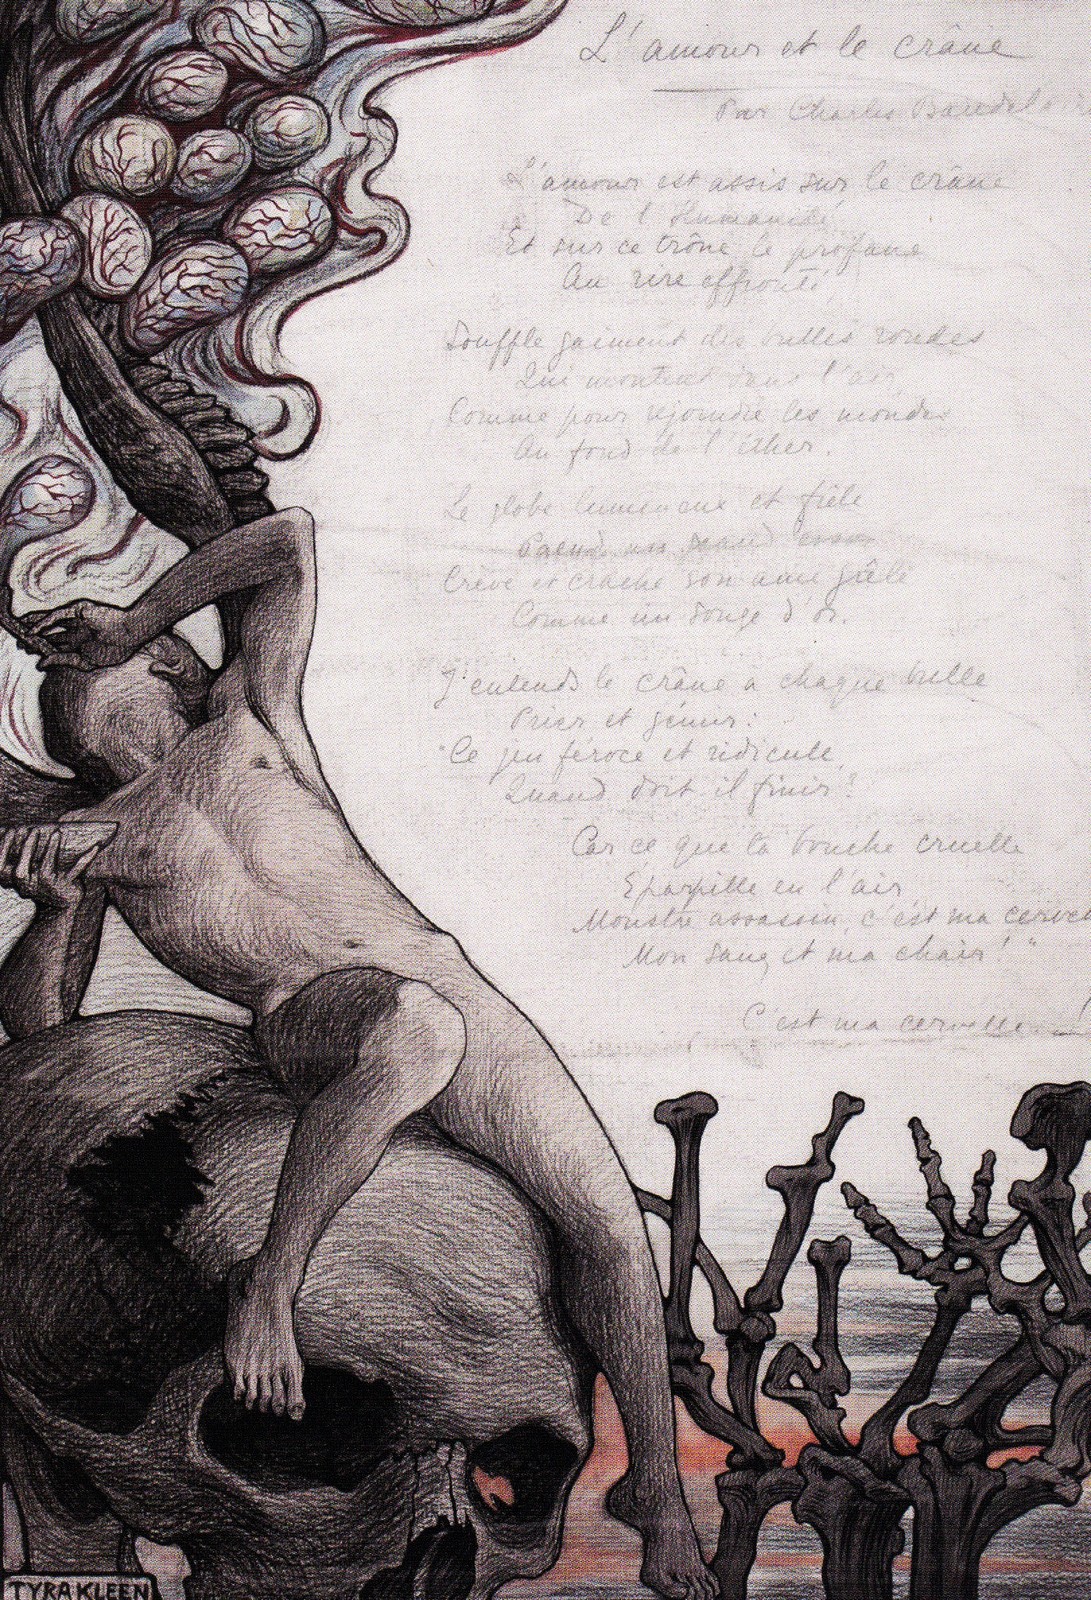 L'amour et le crâne
Par Charles Baudel
L'amour est assis sur le crâne
De l'Humanité
Et sur ce trône le profane
Au rire effronté,
Souffle gaiment des bulles rondes
Qui montent dans l'air
Comme pour rejoindre les mondes
Au fond de l'éther.
Le globe lumineux et frêle
Prend un grand essor
Crève et crache son âme grêle
Comme un songe d'or.
J'entends le crâne à chaque bulle
Prier et gémir:
"Ce jeu féroce et ridicule,
Quand doit il finir?
Car ce que ta bouche cruelle
Eparpille en l'air
Monstre assassin, c'est ma cerve
Mon sang et ma chair!"
C'est ma cervelle
TYRA KLEEN